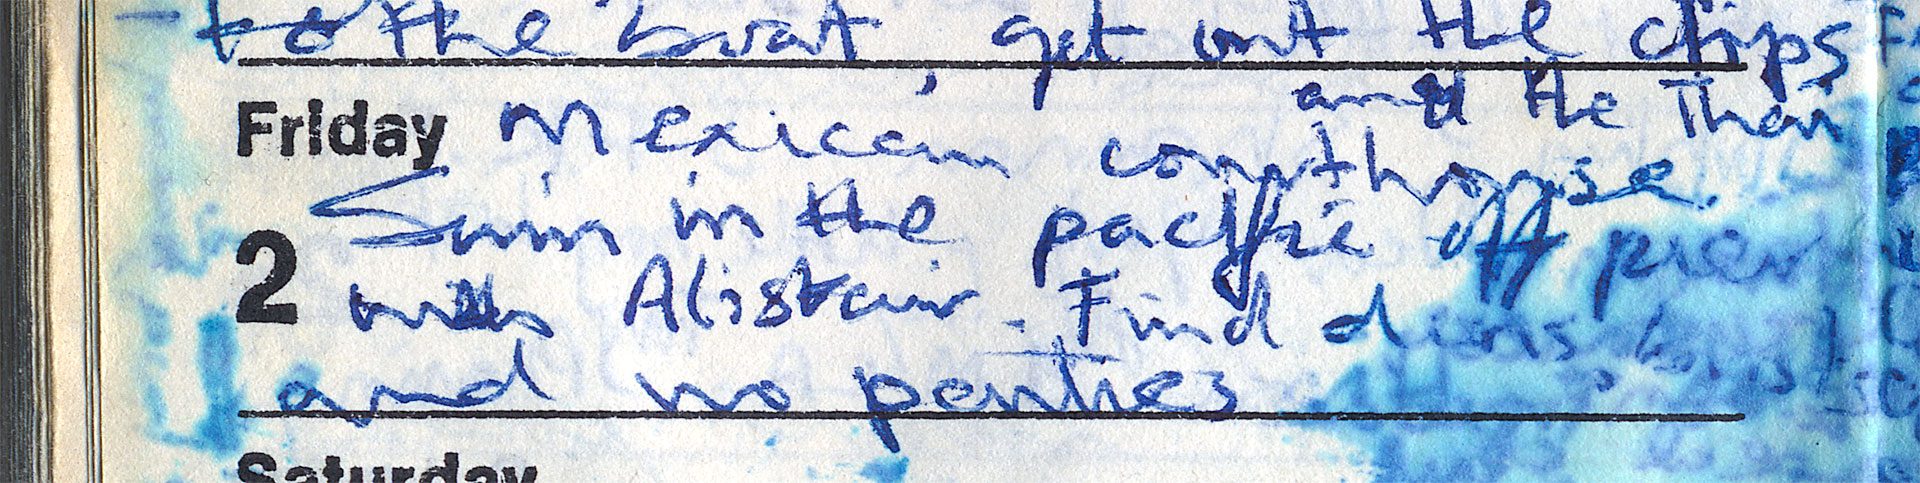 to the boat, get out the chips
and the Thai
Friday Mexican courthouse.
Swim in the pacific off pier
2 with Alistair. Find
and no parties
Saturday